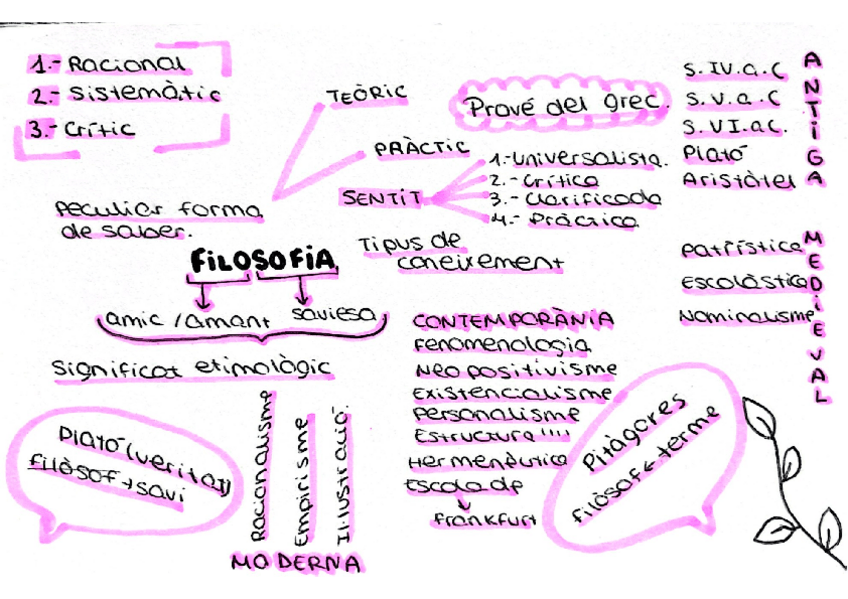 1.- Racional
2.- Sistemàtic
3.- Crític
TEÒRIC
PRÀCTIC
Prové del grec.
S. IV. a. C
S. V. a. C
S. VI. a C.
Plató
Aristòtel
ANTIGA
SENTIT
1.- Universalista.
2.- Crítica
3.- Clarificada
4.- Pràctica
Peculiar forma
de saber.
FILOSOFIA
amic / amant
saviesa
Significat etimològic
Tipus de
coneixement
Patrística
Escolàstica
Nominalisme
MEDIEVAL
CONTEMPORÀNIA
Fenomenologia
Neopositivisme
Existencialisme
Personalisme
Estructura ''''
Hermenèutica
Escola de
Frankfurt
Plató (veritat)
filòsof → savi
Racionalisme
Empirisme
Il·lustració.
MODERNA
Pitàgores
filòsof ← terme